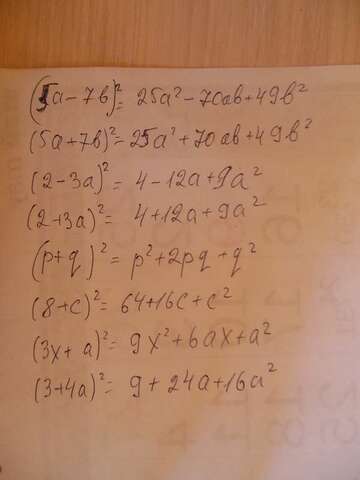 (5a-7b)²= 25a²-70ab+49b²
(5a+7b)²=25a²+70ab+49b²
(2-3a)²= 4-12a+9a²
(2+3a)²= 4+12a+9a²
(p+q)²= p²+2pq+q²
(8+c)²= 64+16c+c²
(3x+a)²= 9x²+6ax+a²
(3+4a)²= 9+24a+16a²